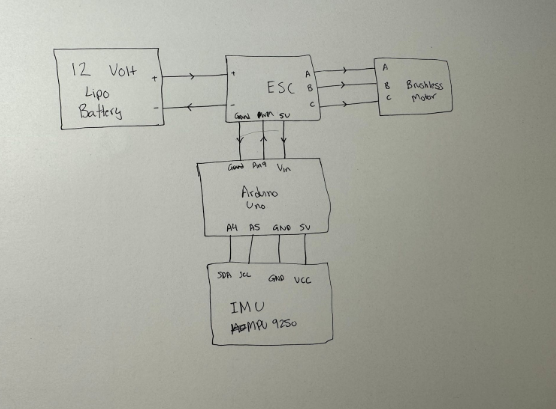 12 Volt
Lipo
Battery
+
-
+
-
ESC
A
B
C
GND PWM 5V
A
B
C
Brushless
Motor
GND Pin9 Vin
Arduino
Uno
A4 A5 GND 5V
SDA SCL GND VCC
IMU
MPU 9250